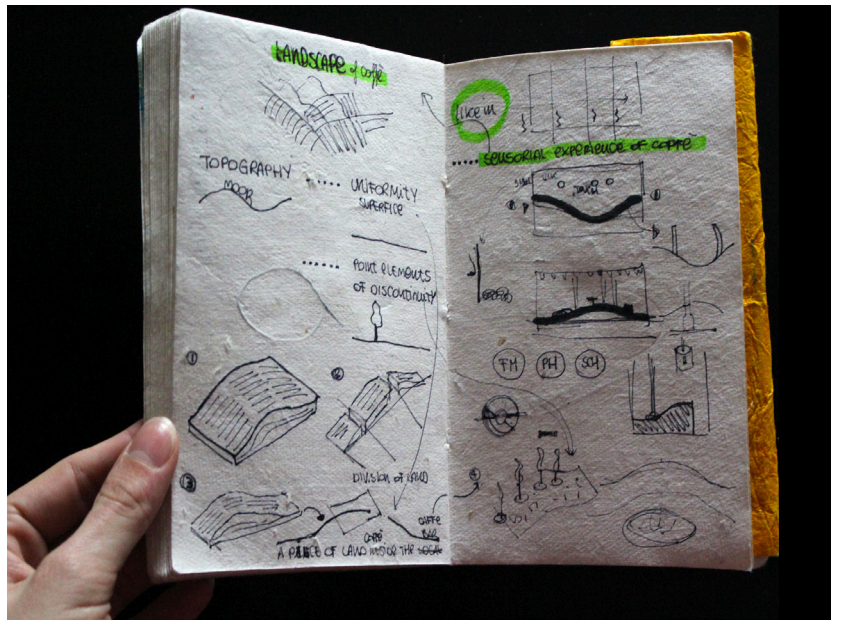 LANDSCAPE of coffè
TOPOGRAPHY
MOOR
UNIFORMITY
SUPERFICE
POINT ELEMENTS
OF DISCONTINUITY
①
②
DIVISION OF LAND
③
COFFÈ
BAR
A PIECE OF LAND INSIDE THE
like in
SENSORIAL EXPERIENCE OF COFFÈ
FM
PH
SCH
④